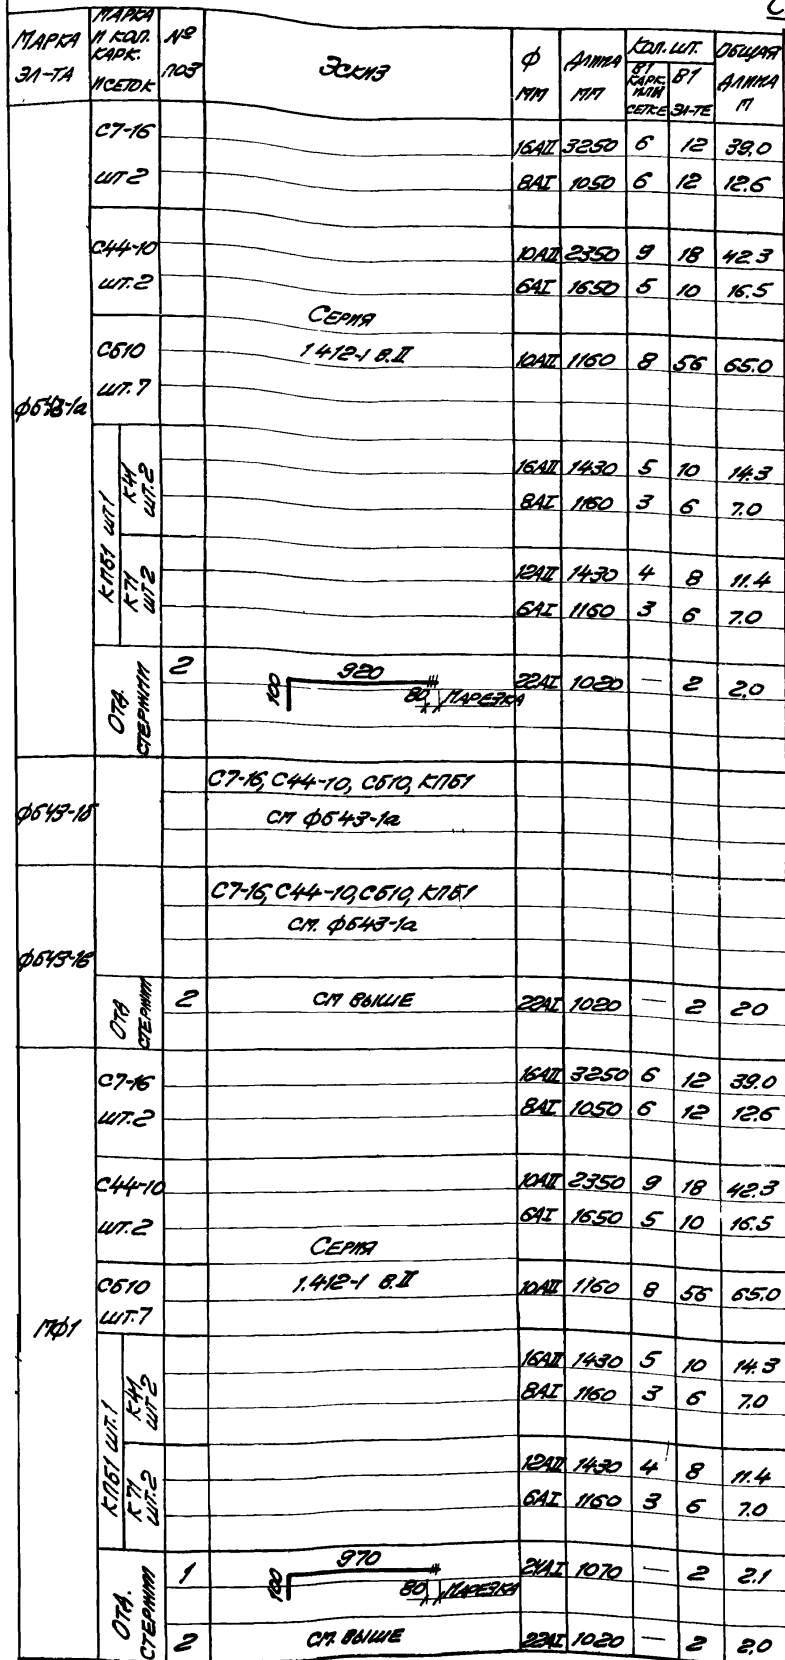 МАРКА ЭЛ-ТА МАРКА И КОЛ. КАРК. И СЕТОК № ПОЗ ЭСКИЗ Ф ММ ДЛИНА ММ КОЛ. ШТ. В 1 КАРК. ИЛИ СЕТКЕ В 1 ЭЛ-ТЕ ОБЩАЯ ДЛИНА М
ФБ43-1а
С7-16 16АII 3250 6 12 39,0
ШТ 2 8АI 1050 6 12 12.6
С44-10 10АII 2350 9 18 42.3
ШТ. 2 6АI 1650 5 10 16.5
СЕРИЯ
С610 1.412-1 В.II 10АII 1160 8 56 65.0
ШТ. 7
КПБ1 ШТ.1
К41 ШТ.2 16АII 1430 5 10 14.3
8АI 1160 3 6 7.0
К71 ШТ 2 12АII 1430 4 8 11.4
6АI 1160 3 6 7.0
ОТД. СТЕРЖНИ 2 100 920 80 НАРЕЗКА 22АI 1020 — 2 2,0
ФБ43-1б
С7-16, С44-10, С610, КПБ1
СМ ФБ43-1а
С7-16, С44-10, С610, КПБ1
СМ. ФБ43-1а
ОТД СТЕРЖНИ 2 СМ ВЫШЕ 22АI 1020 — 2 2.0
МФ1
С7-16 16АII 3250 6 12 39.0
ШТ.2 8АI 1050 6 12 12.6
С44-10 10АII 2350 9 18 42.3
ШТ.2 6АI 1650 5 10 16.5
СЕРИЯ
С610 1.412-1 В.II 10АII 1160 8 56 65.0
ШТ.7
КПБ1 ШТ.1
К41 ШТ 2 16АII 1430 5 10 14.3
8АI 1160 3 6 7.0
К71 ШТ.2 12АII 1430 4 8 11.4
6АI 1160 3 6 7.0
ОТД. СТЕРЖНИ 1 100 970 80 НАРЕЗКА 1070 — 2 2.1
2 СМ. ВЫШЕ 22АI 1020 — 2 2,0